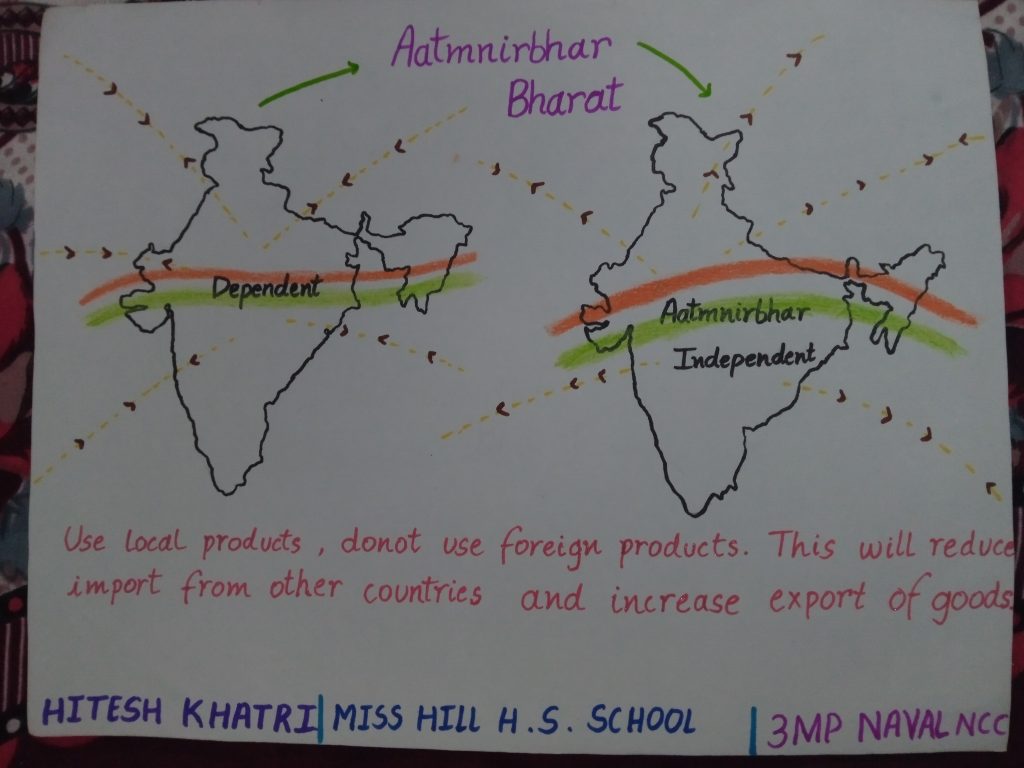 Aatmnirbhar
Bharat
Dependent
Aatmnirbhar
Independent
Use local products, donot use foreign products. This will reduce
import from other countries and increase export of goods.
HITESH KHATRI | MISS HILL H.S. SCHOOL | 3MP NAVAL NCC